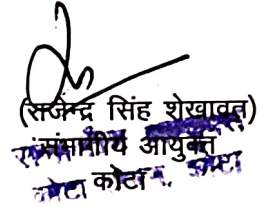 (राजेन्द्र सिंह शेखावत)
संभागीय आयुक्त
कोटा